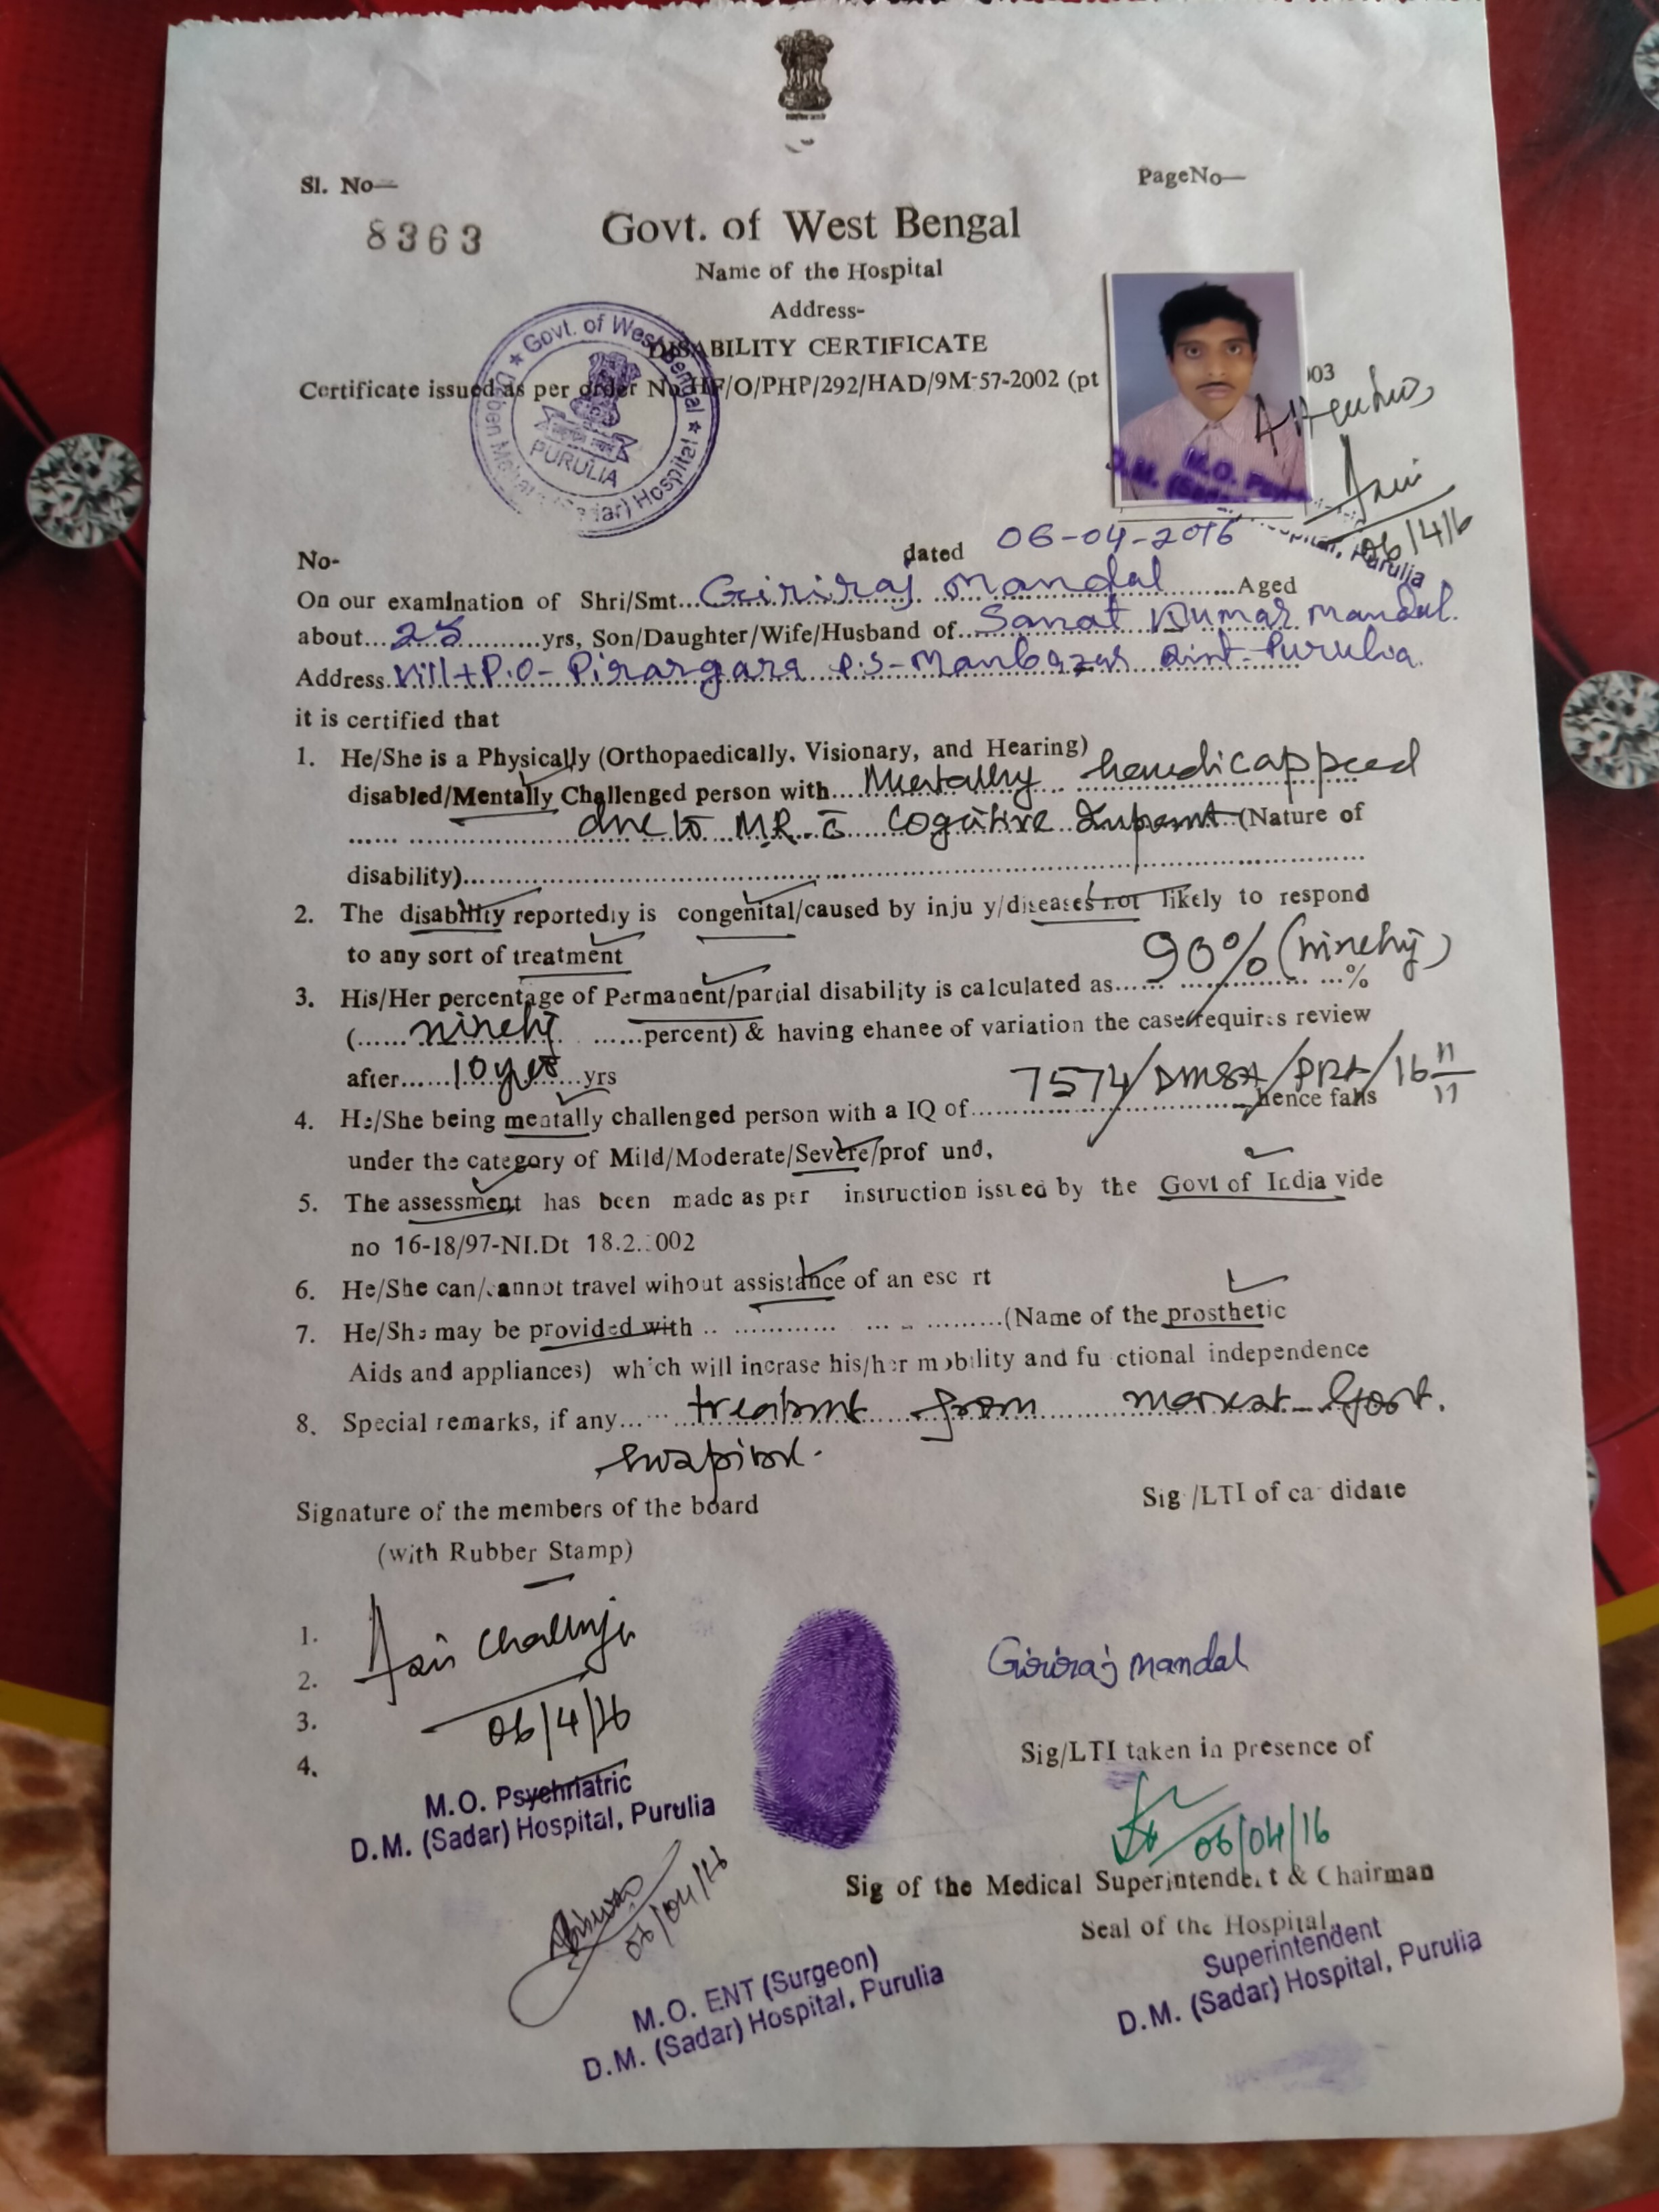 Sl. No—
PageNo—
8363
Govt. of West Bengal
Name of the Hospital
Address-
DISABILITY CERTIFICATE
Certificate issued as per order No HF/O/PHP/292/HAD/9M-57-2002 (pt 003
Govt. of West Bengal
(Sadar) Hospital
PURULIA
M.O.
06/4/16
Purulia
No-
dated 06-04-2016
On our examination of Shri/Smt...Giriraj Mandal.......Aged
about...25.........yrs, Son/Daughter/Wife/Husband of...Sanat Kumar Mandal.
Address.Vill+P.O- Pirargara P.S-Manbazar Dist-Purulia.
it is certified that
1. He/She is a Physically (Orthopaedically, Visionary, and Hearing)
disabled/Mentally Challenged person with....Mentally handicapped
due to M.R. c̄ Cogitive (Nature of
disability)
2. The disability reportedly is congenital/caused by inju y/diseases not likely to respond
to any sort of treatment
3. His/Her percentage of Permanent/partial disability is calculated as...... 90% (ninety) ...%
(......ninety ......percent) & having ehanee of variation the case requires review
after......10 yrs....yrs
7574/DMSH/PRL/16
4. He/She being mentally challenged person with a IQ of............hence falls
under the category of Mild/Moderate/Severe/prof und,
5. The assessment has been made as per instruction issued by the Govt of India vide
no 16-18/97-NI.Dt 18.2. 002
6. He/She can/cannot travel wihout assistance of an esc rt
7. He/She may be provided with .. ............ ... .. .........(Name of the prosthetic
Aids and appliances) which will incrase his/her mobility and fu ctional independence
8. Special remarks, if any...... from Govt.
Signature of the members of the board
Sig /LTI of ca didate
(with Rubber Stamp)
1.
2.
3. 06/4/16
4.
Giriraj Mandal
Sig/LTI taken in presence of
M.O. Psychriatric
D.M. (Sadar) Hospital, Purulia
06/04/16
06/04/16
Sig of the Medical Superintende. t & Chairman
Seal of the Hospital
Superintendent
D.M. (Sadar) Hospital, Purulia
M.O. ENT (Surgeon)
D.M. (Sadar) Hospital, Purulia